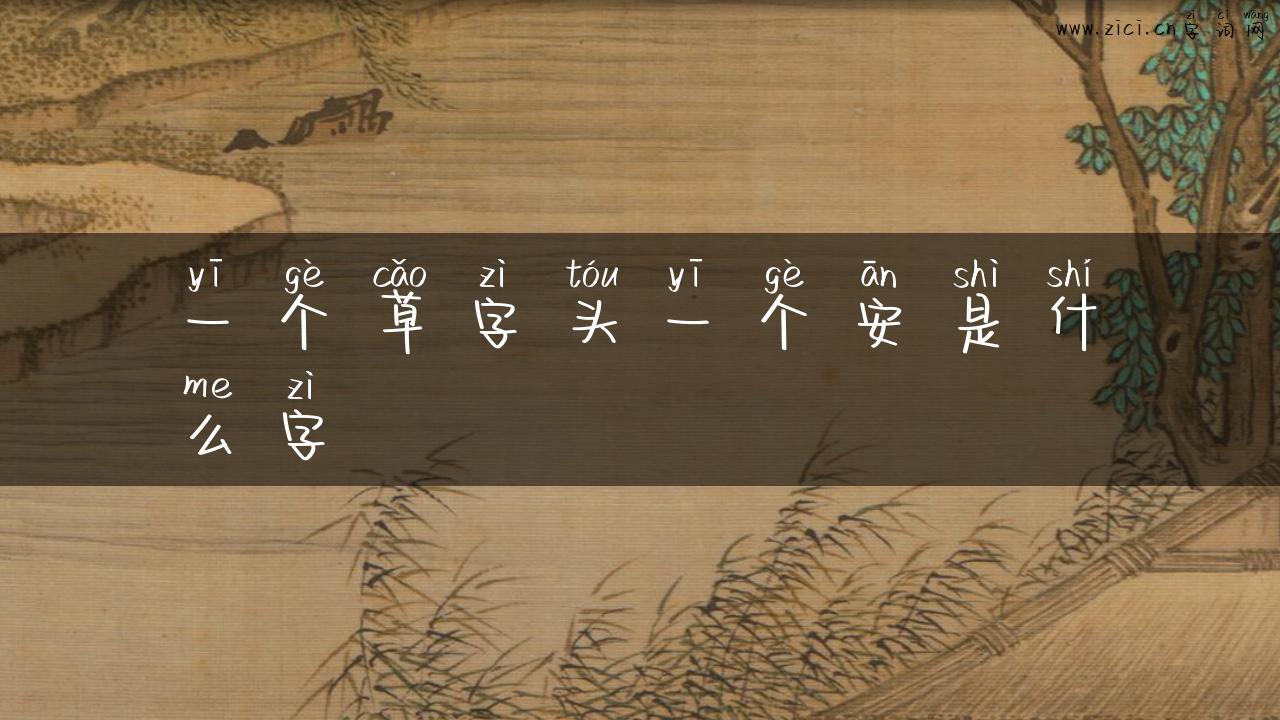 zì cí wǎng
www.zici.cn字词网
yī gè cǎo zì tóu yī gè ān shì shí
一个草字头一个安是什
me zì
么字